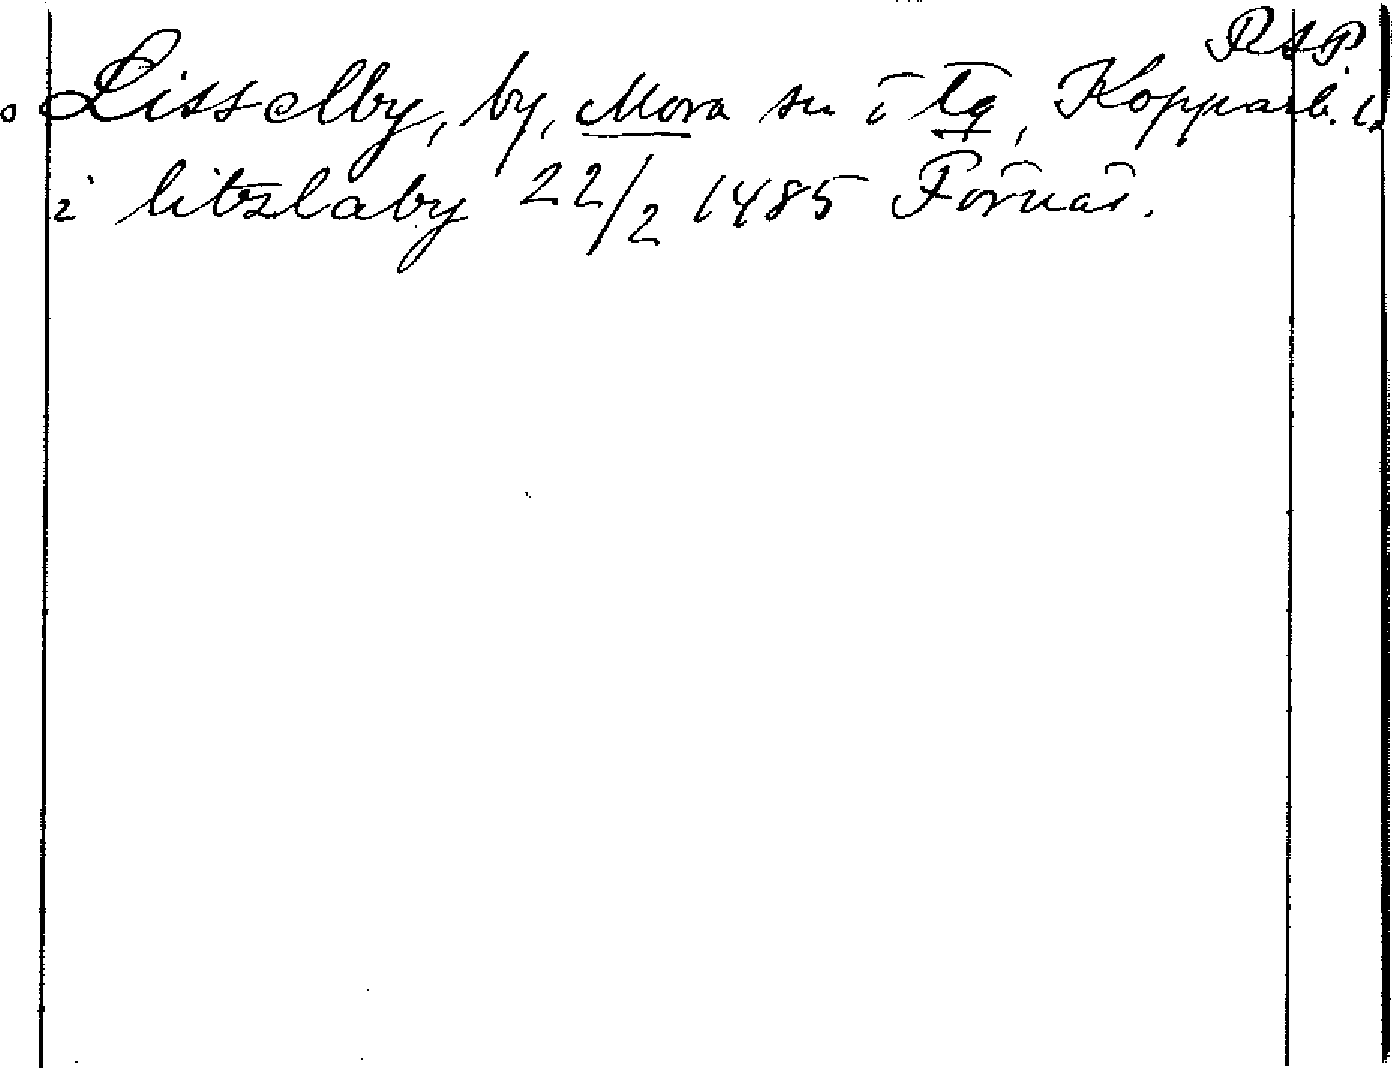 RAP.
Lisselby, by, Mora sn i tg, Kopparb. l.
i litzslaby 22/2 1485 Fornäs.